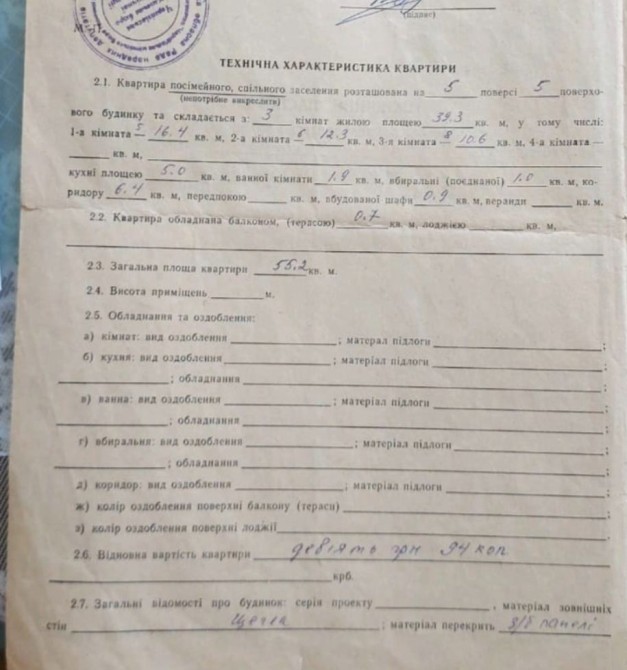 М. П.
(підпис)
ТЕХНІЧНА ХАРАКТЕРИСТИКА КВАРТИРИ
2.1. Квартира посімейного, спільного заселення розташована на 5 поверсі 5 поверхо-
(непотрібне викреслити)
вого будинку та складається з: 3 кімнат жилою площею 39.3 кв. м, у тому числі:
1-а кімната — 5 16.4 кв. м, 2-а кімната — 6 12.3 кв. м, 3-я кімната — 8 10.6 кв. м, 4-а кімната —
кв. м,
кухні площею 5.0 кв. м, ванної кімнати 1.9 кв. м, вбиральні (поєднаної) 1.0 кв. м, ко-
ридору 6.4 кв. м, передпокою кв. м, вбудованої шафи 0.9 кв. м, веранди кв. м.
2.2. Квартира обладнана балконом, (терасою) 0.7 кв. м, лоджією кв. м,
2.3. Загальна площа квартири 55.2 кв. м.
2.4. Висота приміщень м.
2.5. Обладнання та оздоблення:
а) кімнат: вид оздоблення ; матерал підлоги ;
б) кухня: вид оздоблення ; матеріал підлоги ;
; обладнання ;
в) ванна: вид оздоблення ; матеріал підлоги ;
; обладнання ;
г) вбиральня: вид оздоблення ; матеріал підлоги ;
; обладнання ;
д) коридор: вид оздоблення ; матеріал підлоги ;
ж) колір оздоблення поверхні балкону (тераси) ;
з) колір оздоблення поверхні лоджії ;
2.6. Відновна вартість квартири девіято грн 94 коп
крб.
2.7. Загальні відомості про будинок: серія проекту , матеріал зовнішніх
стін Цегла ; матеріал перекрить з/б панелі